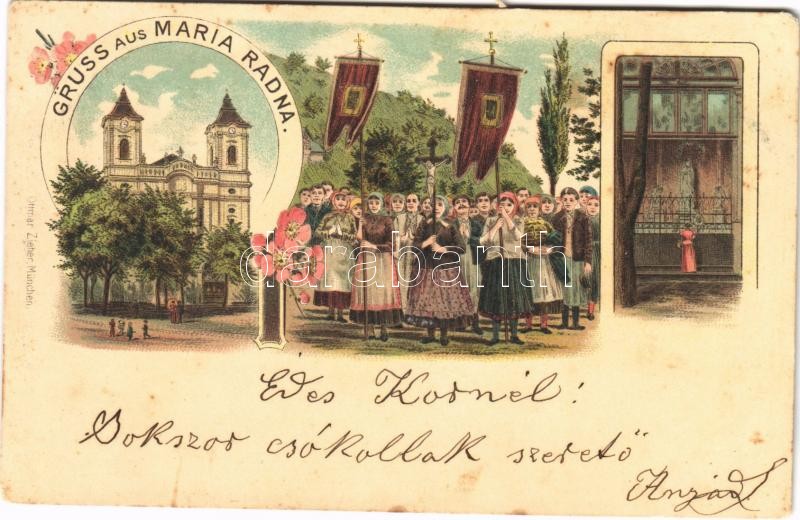 GRUSS AUS MARIA RADNA.
Ottmar Zieher, München
darabanth
Édes Kornél!
Sokszor csókollak szerető
Anyád